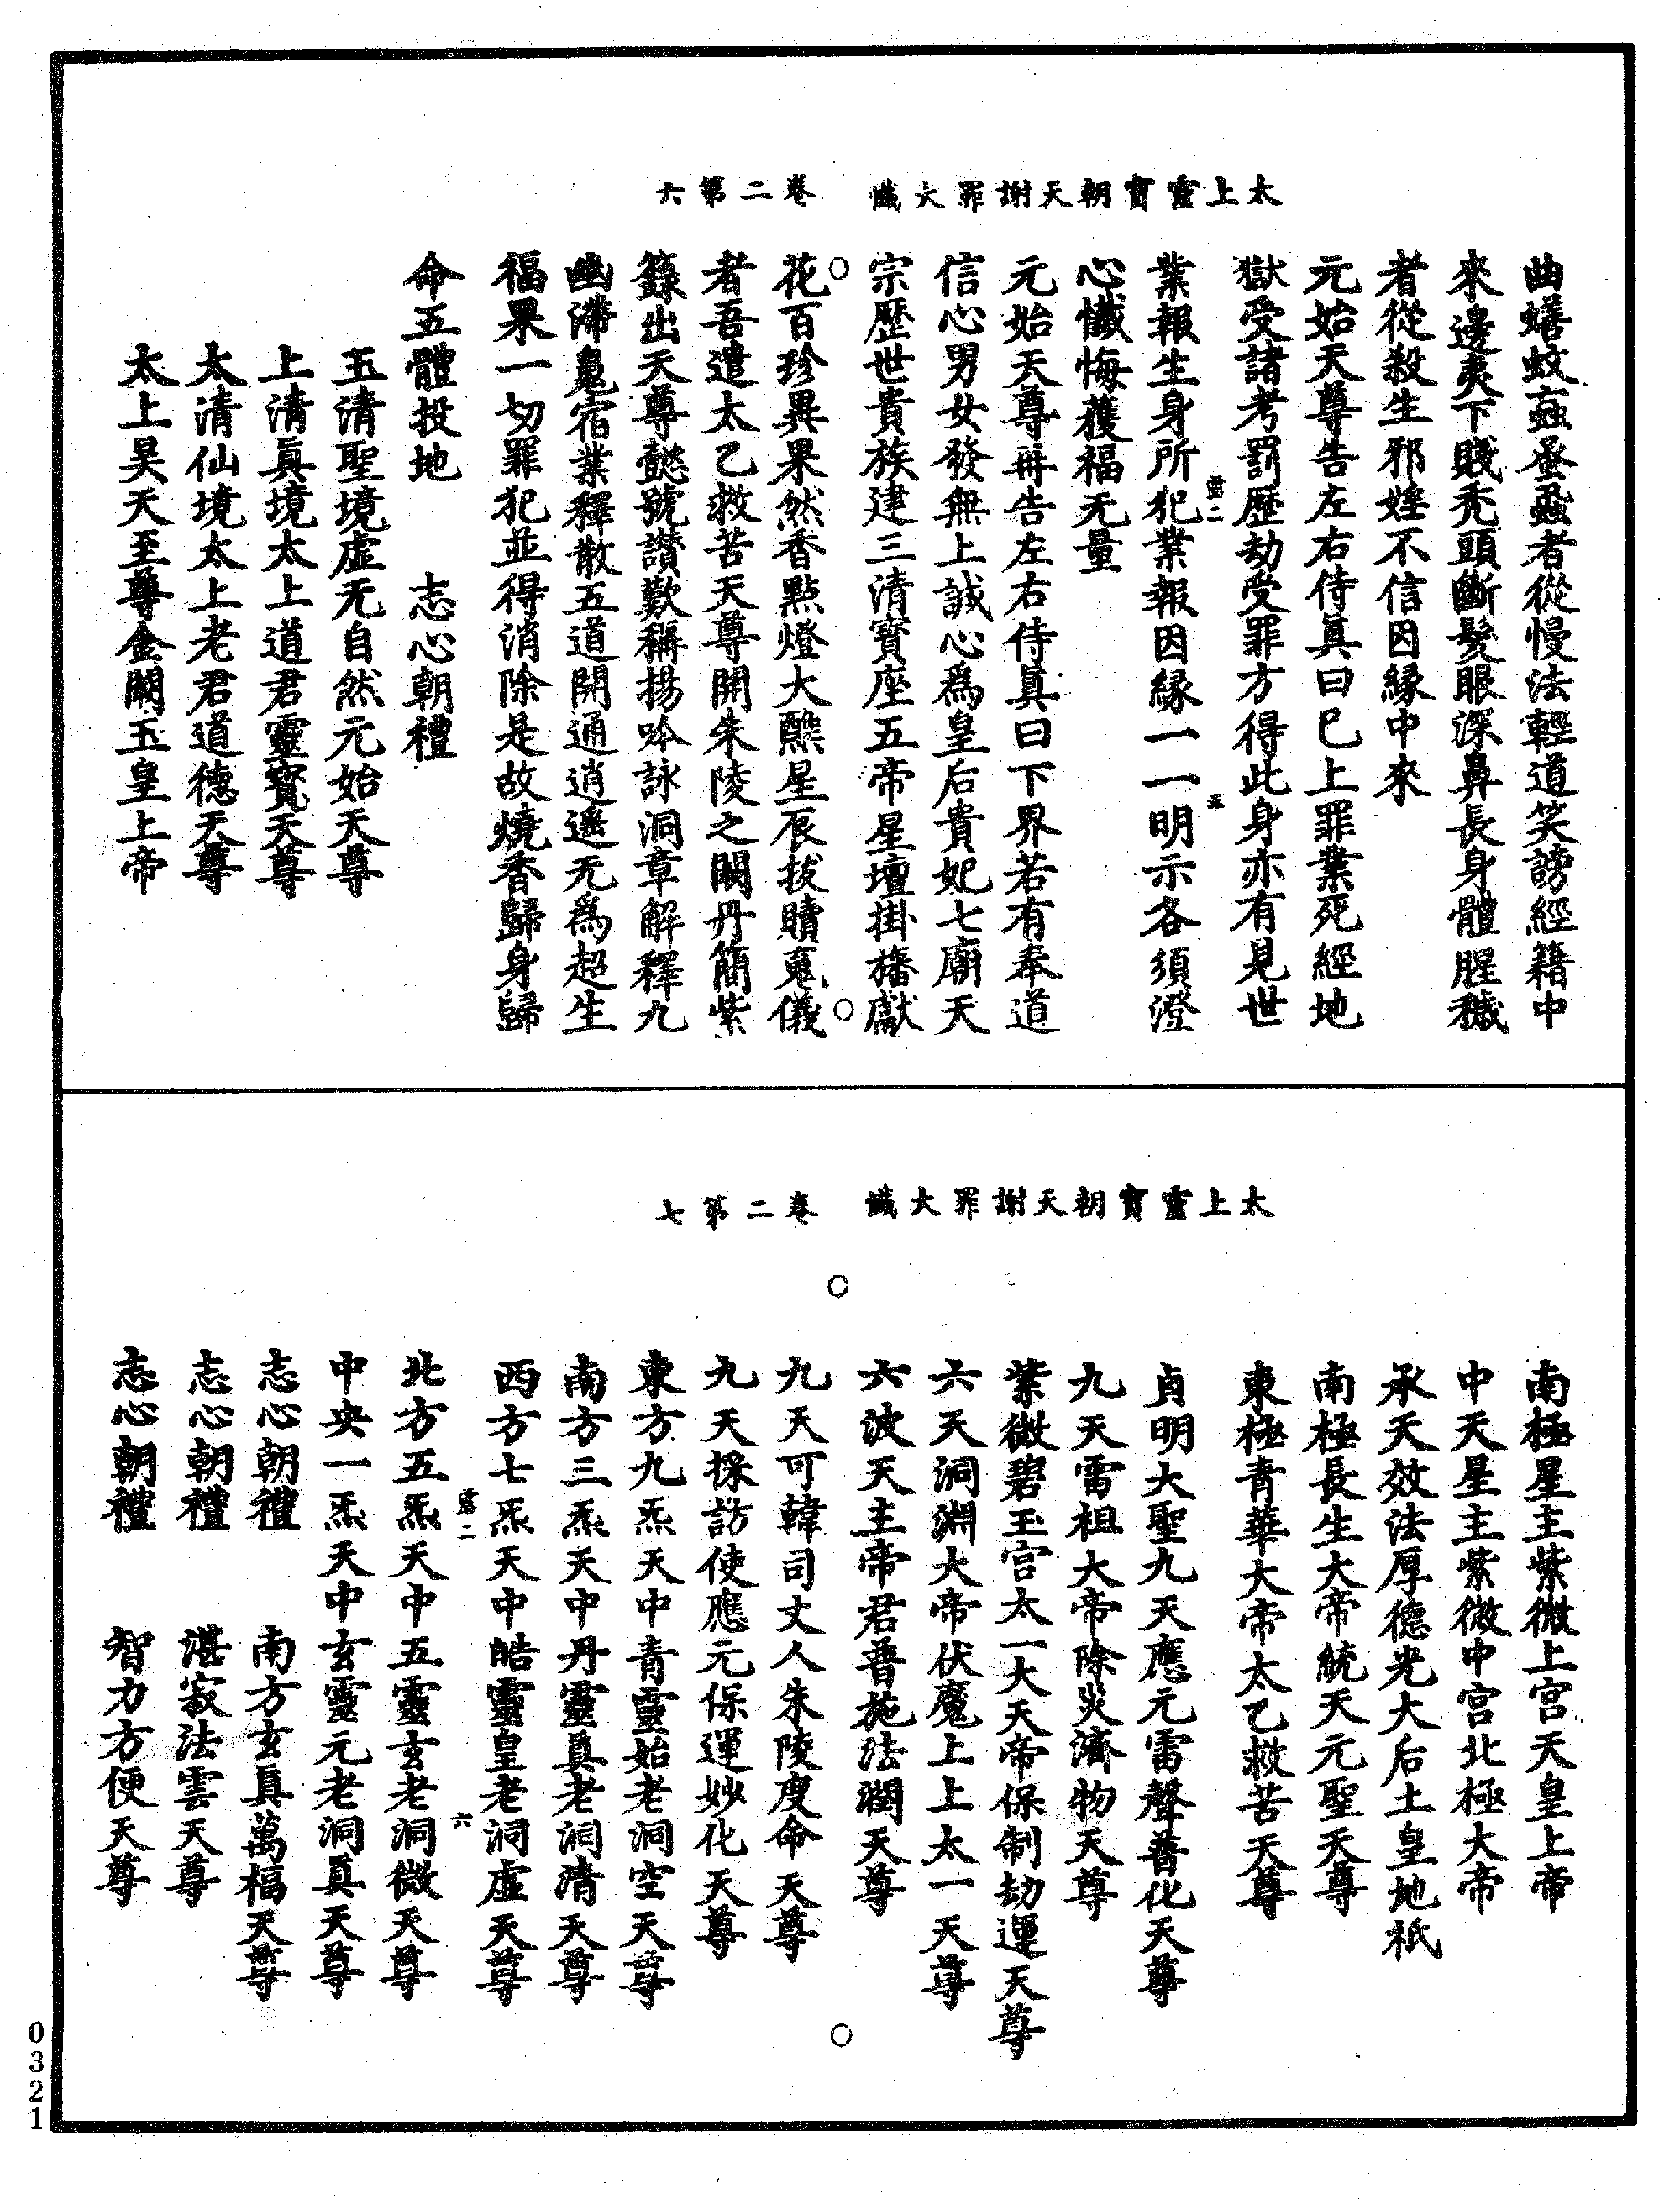 太上靈寶朝天謝罪大懺　卷二第六
曲蟮蚊䖟蚤蝨者從慢法輕道笑謗經籍中
來邊夷下賤禿頭斷髮眼深鼻長身體腥穢
者從殺生邪婬不信因緣中來
元始天尊告左右侍眞曰巳上罪業死經地
獄受諸考罰歷劫受罪方得此身亦有見世
業報生身所犯業報因緣一一明示各須澄
心懺悔獲福无量
元始天尊冊告左右侍眞曰下界若有奉道
信心男女發無上誠心爲皇后貴妃七廟天
宗歷世貴族建三清寶座五帝星壇掛旛獻
花百珍異果然香點燈大醮星辰拔贖䰟儀
者吾遣太乙救苦天尊開朱陵之闕丹簡紫
籙出天尊懿號讃歎稱揚吟詠洞章解釋九
幽滯䰟宿業釋散五道開通逍遙无爲超生
福果一切罪犯並得消除是故燒香歸身歸
命五體投地　志心朝禮
玉清聖境虛无自然元始天尊
上清眞境太上道君靈寶天尊
太清仙境太上老君道德天尊
太上昊天至尊金闕玉皇上帝
太上靈寶朝天謝罪大懺　卷二第七
南極星主紫微上宮天皇上帝
中天星主紫微中宮北極大帝
承天效法厚德光大后土皇地祇
南極長生大帝統天元聖天尊
東極青華大帝太乙救苦天尊
貞明大聖九天應元雷聲普化天尊
九天雷祖大帝除災濟物天尊
紫微碧玉宮太一大天帝保制劫運天尊
六天洞淵大帝伏魔上上太一天尊
六波天主帝君普施法潤天尊
九天可韓司丈人朱陵度命天尊
九天採訪使應元保運妙化天尊
東方九炁天中青靈始老洞空天尊
南方三炁天中丹靈眞老洞清天尊
西方七炁天中皓靈皇老洞虛天尊
北方五炁天中五靈玄老洞微天尊
中央一炁天中玄靈元老洞眞天尊
志心朝禮　南方玄眞萬福天尊
志心朝禮　湛寂法雲天尊
志心朝禮　智力方便天尊
0321